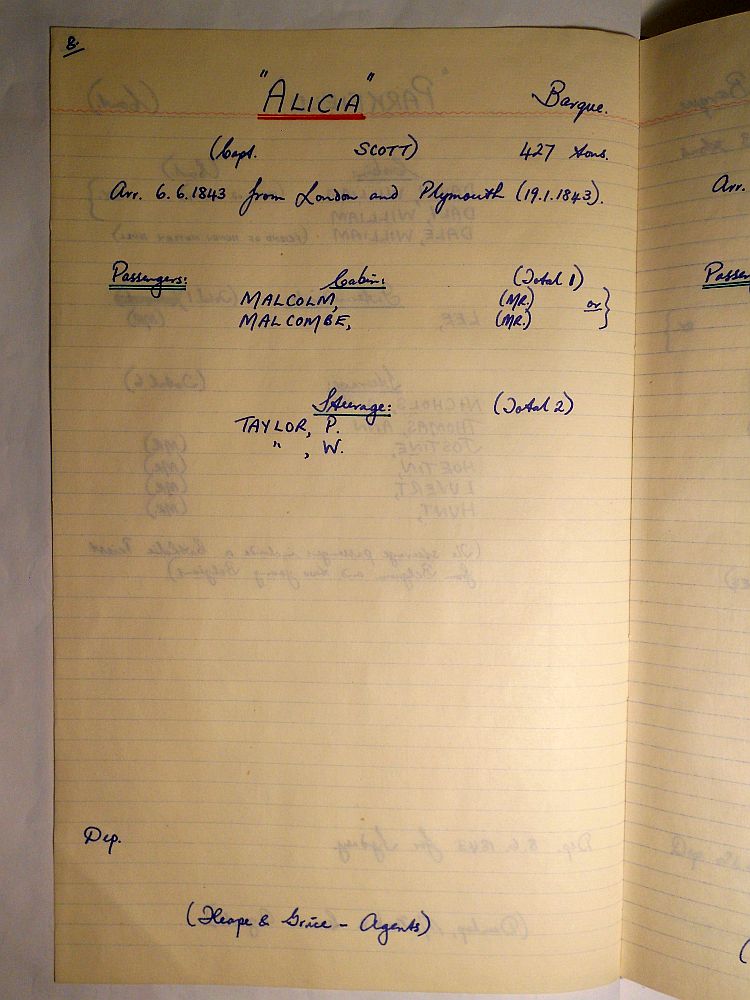 8.
"ALICIA" Barque.
(Capt. SCOTT) 427 tons.
Arr. 6.6.1843 from London and Plymouth (19.1.1843).
Passengers: Cabin: (Total 1)
MALCOLM, (MR.) or }
MALCOMBE, (MR.)
Steerage: (Total 2)
TAYLOR, P.
" , W.
Dep.
(Heape & Grice - Agents)
Arr.
Passen